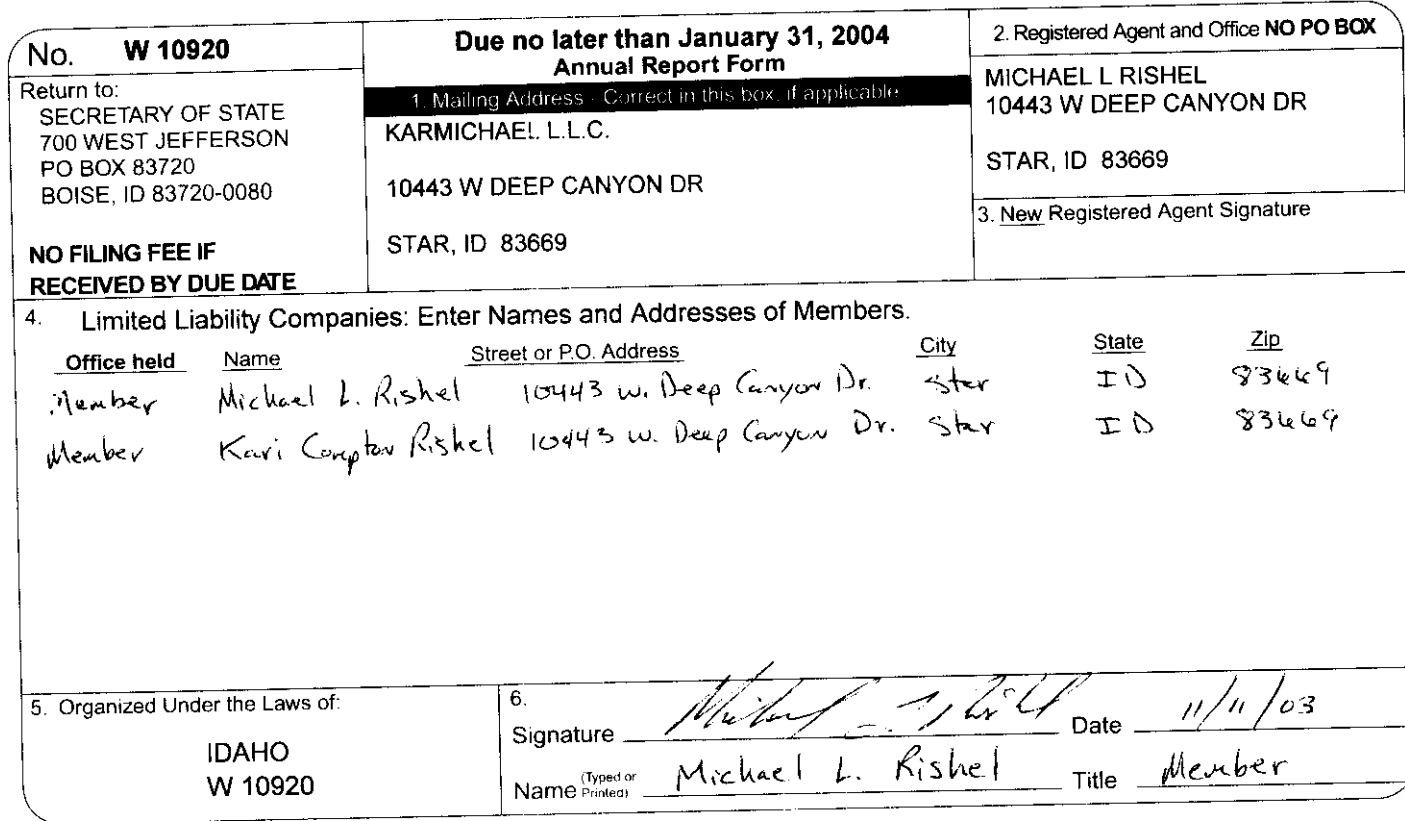 No. W 10920
Return to:
SECRETARY OF STATE
700 WEST JEFFERSON
PO BOX 83720
BOISE, ID 83720-0080
NO FILING FEE IF
RECEIVED BY DUE DATE
Due no later than January 31, 2004
Annual Report Form
1. Mailing Address - Correct in this box, if applicable
KARMICHAEL L.L.C.
10443 W DEEP CANYON DR
STAR, ID 83669
2. Registered Agent and Office NO PO BOX
MICHAEL L RISHEL
10443 W DEEP CANYON DR
STAR, ID 83669
3. New Registered Agent Signature
4. Limited Liability Companies: Enter Names and Addresses of Members.
Office held Name Street or P.O. Address City State Zip
Member Michael L. Rishel 10443 W. Deep Canyon Dr. Star ID 83669
Member Kari Compton Rishel 10443 W. Deep Canyon Dr. Star ID 83669
5. Organized Under the Laws of:
IDAHO
W 10920
6.
Signature Date 11/11/03
Name (Typed or Printed) Michael L. Rishel Title Member